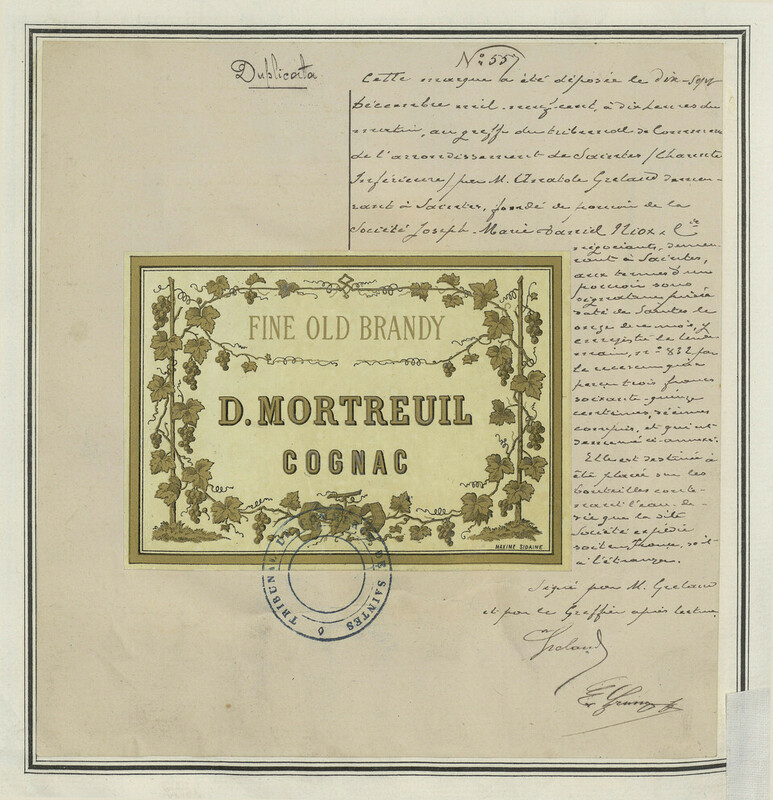 Duplicata
N° 557
Cette marque a été déposée le dix-sept
Décembre mil neuf cent, à dix heures du
matin, au greffe du tribunal de Commerce
de l'arrondissement de Saintes (Charente
Inférieure) par M. Anatole Greland demeu-
rant à Saintes, fondé de pouvoir de la
Société Joseph-Marie Daniel Riox & Cie
négociants, demeu-
rant à Saintes,
aux termes d'un
pouvoir sous
signatures privées
daté de Saintes le
onze de ce mois,
enregistré le lende-
main, n° 832 par
le receveur qui a
perçu trois francs
soixante-quinze
centimes, décimes
compris, et qui est
demeuré ci-annexé.
Elle est destinée à
être placée sur les
bouteilles conte-
nant l'eau-de-
vie que la dite
Société expédie
soit en France, soit
à l'étranger.
Signé par M. Greland
et par le Greffier après lecture
Greland
FINE OLD BRANDY
D. MORTREUIL
COGNAC
MAXIME SIDAINE
TRIBUNAL DE SAINTES